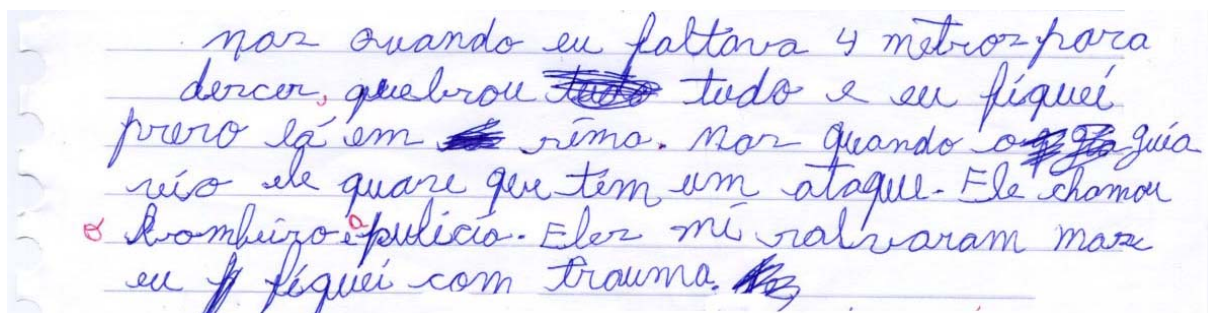 mas ouando eu faltava 4 metros para
descer, quebrou tudo e eu fiquei
preso lá em sima. Mas quando o guia
veio ele quase que tem um ataque. Ele chamou
o bombeiro e a pulicia. Eles mi salvaram mas
eu fiquei com trauma.